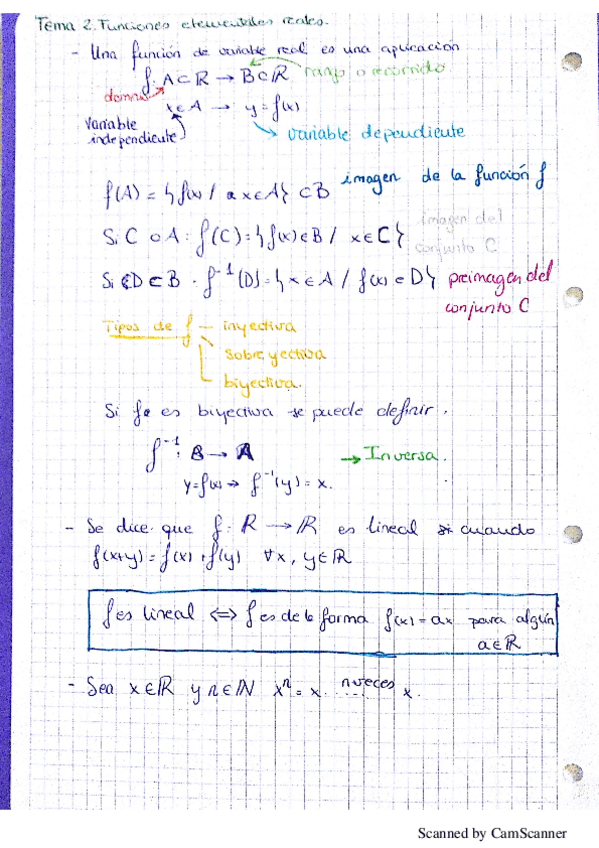 Tema 2. Funciones elementales reales.
- Una función de variable real es una aplicación
f: A⊂ℝ → B⊂ℝ rango o recorrido
dominio
x∈A → y=f(x)
Variable independiente
variable dependiente
f(A) = {f(x) / a x∈A} ⊂B imagen de la función f
Si C ⊂ A: f(C)={f(x)∈B / x∈C} imagen del conjunto C
Si D⊂B. f⁻¹(D)={x∈A / f(x)∈D} preimagen del conjunto C
Tipos de f - inyectiva
sobreyectiva
biyectiva.
Si f es biyectiva se puede definir.
f⁻¹: B→A → Inversa.
y=f(x) → f⁻¹(y)=x.
- Se dice que f: ℝ → ℝ es lineal cuando
f(x+y)=f(x)+f(y) ∀x, y∈ℝ
f es lineal ⇔ f es de la forma f(x)=ax para algún
a∈ℝ
- Sea x∈ℝ y n∈ℕ xⁿ=x. n veces x.
Scanned by CamScanner